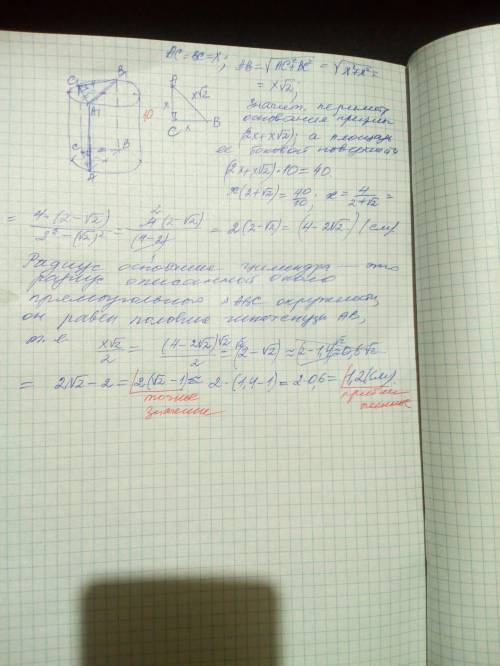 AC = BC = X; AB = √AC²+BC² = √X²+X² =
= X√2,
Значит, периметр
основания призмы
(2x+x√2); а площадь
ее боковой поверхности
(2x+x√2)·10 = 40
x(2+√2) = 40/10, x = 4/(2+√2) =
= 4·(2-√2)/(2²-(√2)²) = 4(2-√2)/(4-2) = 2(2-√2) = (4-2√2) (см)
Радиус основания цилиндра - это
радиус описанной около
прямоугольного ΔABC окружности,
он равен половине гипотенузы AB,
т. е
x√2/2 = (4-2√2)√2/2 = (2-√2)√2
= 2√2-2 = 2(√2-1) ≈ 2·(1,4-1) = 2·0,6 = 1,2 (см)
точное
значение
приближ
C
B
A1
10
C
B
A
A
x√2
x
C
x
B